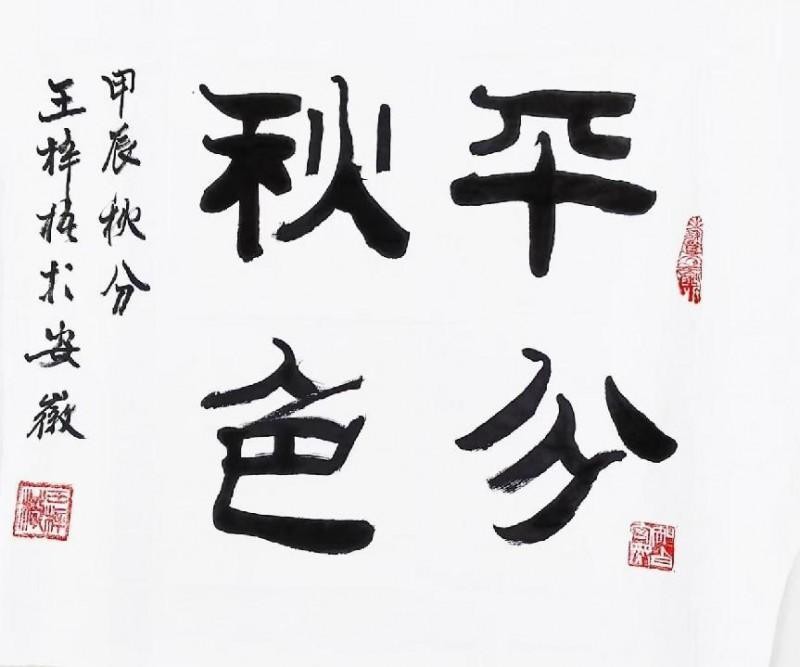 平分
秋色
甲辰秋分
王梓梧于安徽